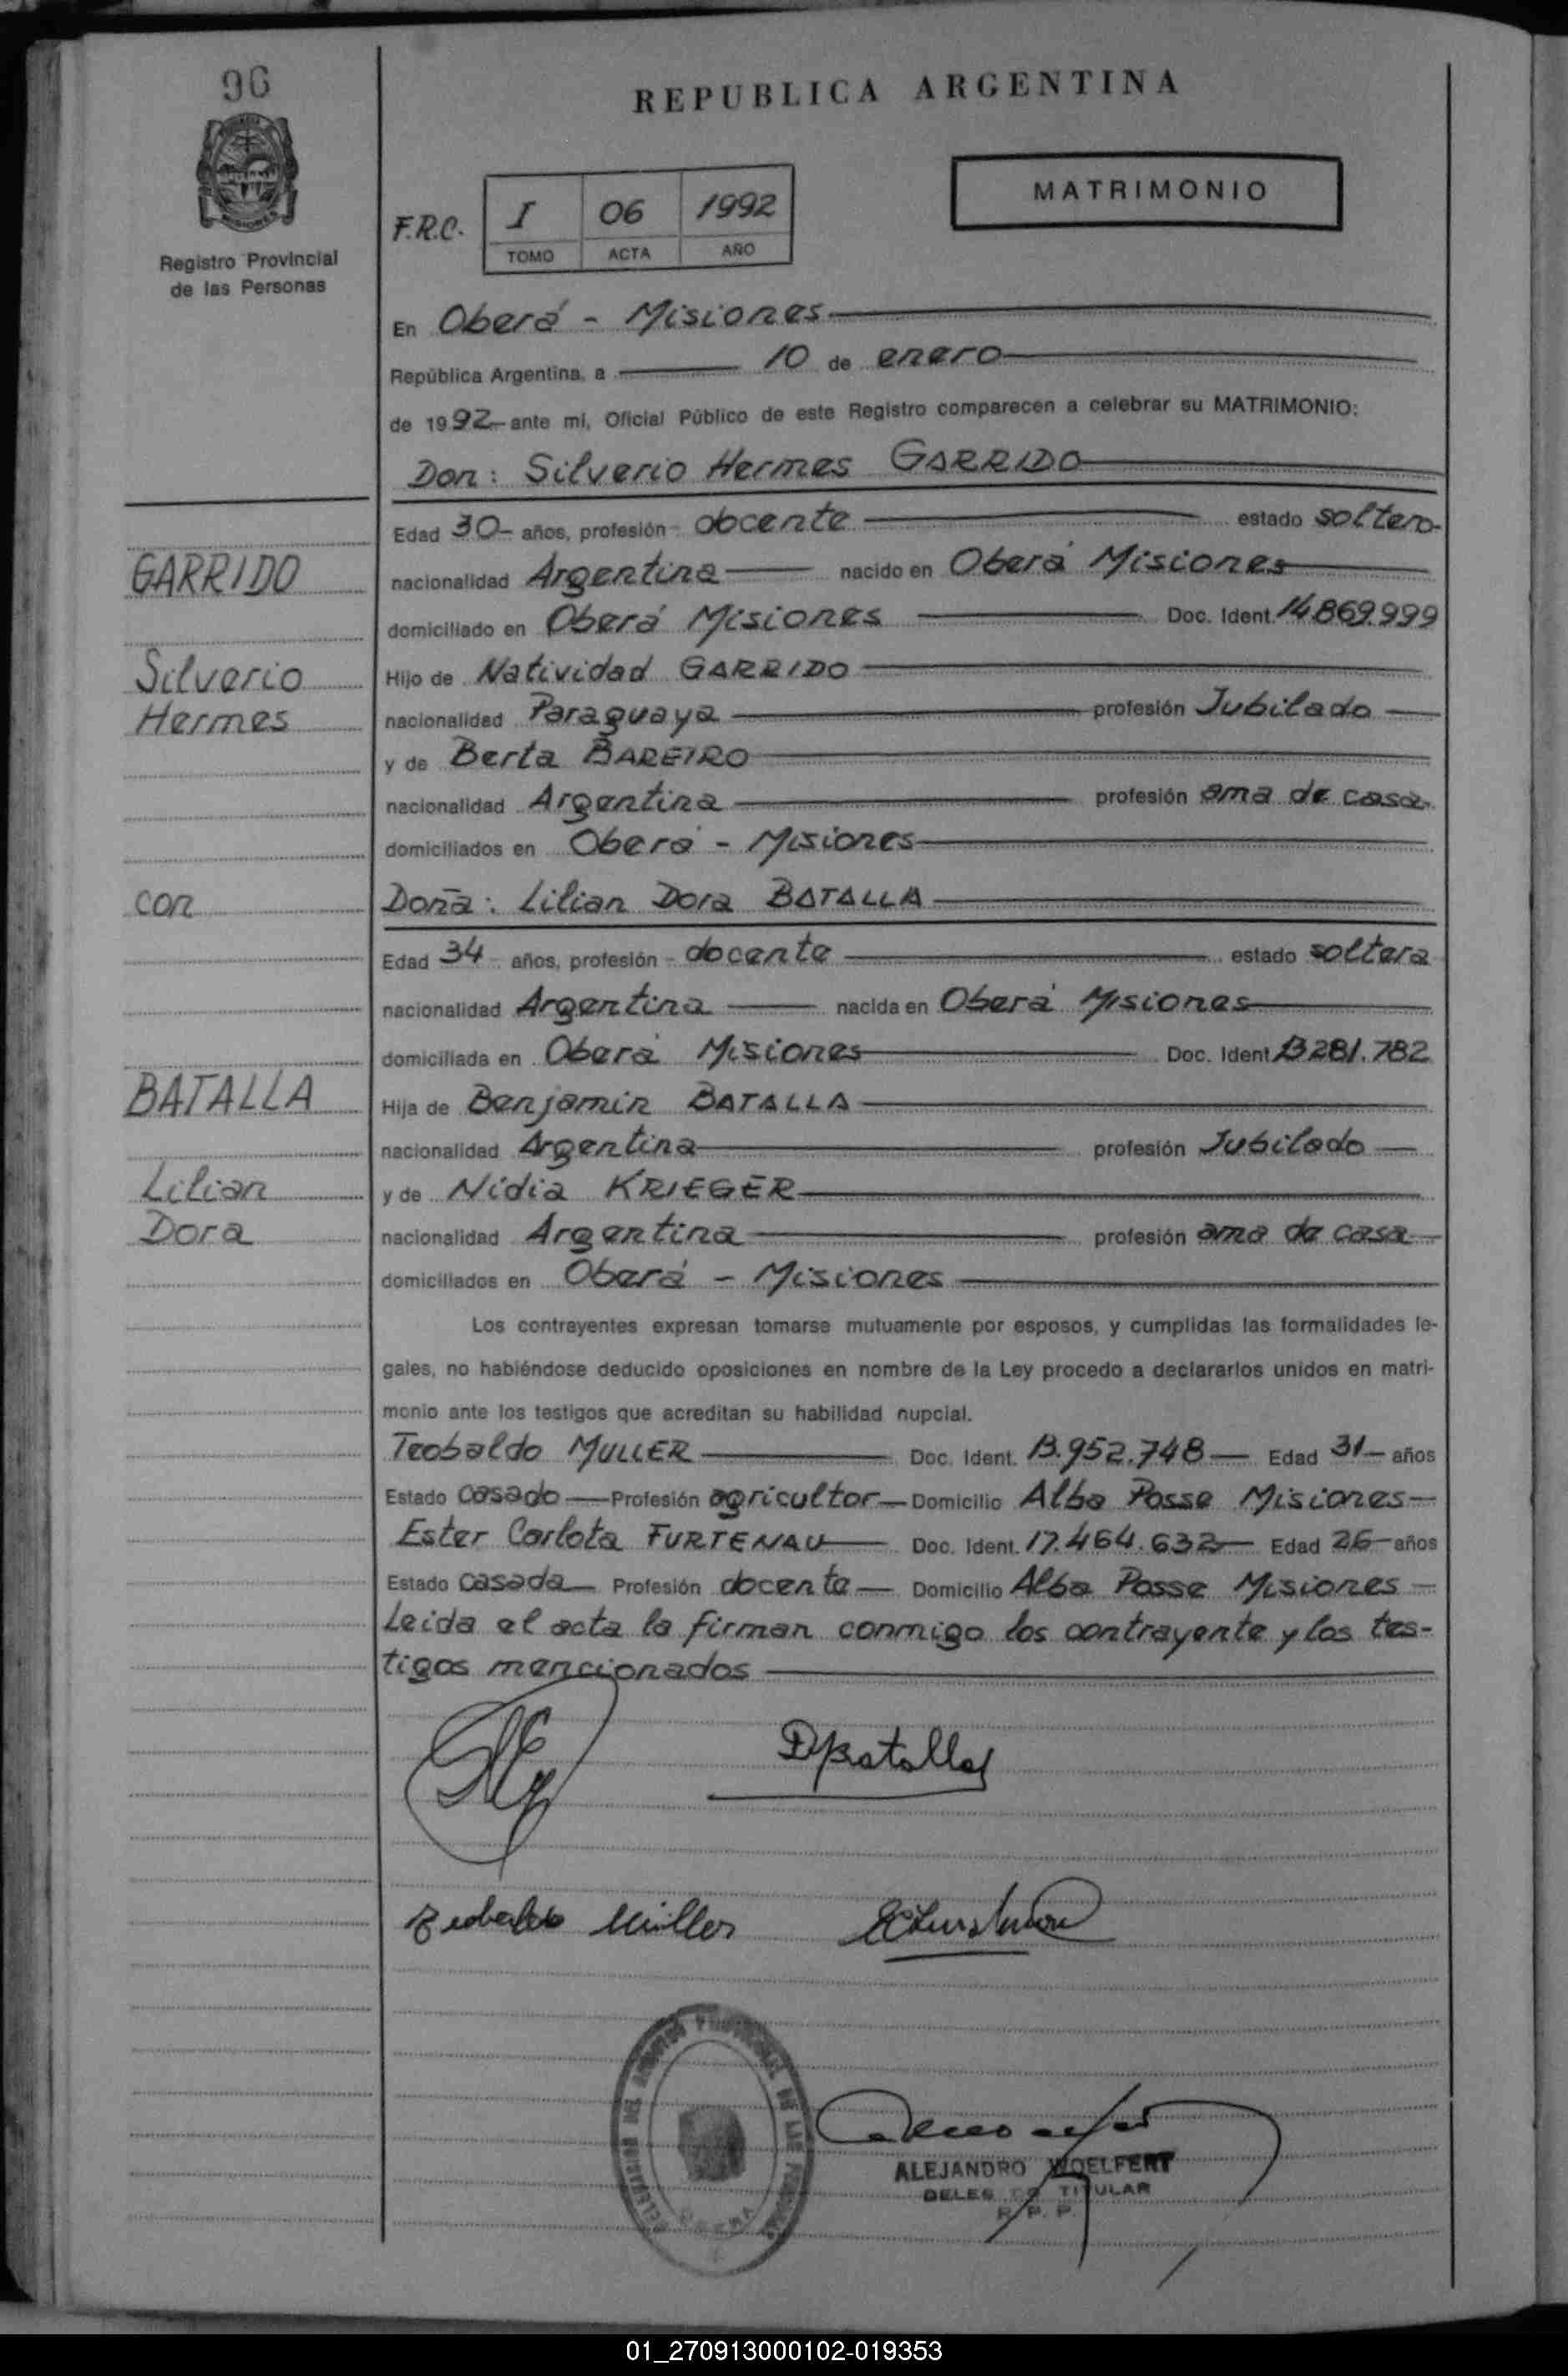 96
REPUBLICA ARGENTINA
MATRIMONIO
Registro Provincial
de las Personas
F.R.C.
I 06 1992
TOMO ACTA AÑO
En Oberá - Misiones
República Argentina, a 10 de enero
de 1992 ante mi, Oficial Público de este Registro comparecen a celebrar su MATRIMONIO:
Don: Silverio Hermes GARRIDO
Edad 30- años, profesión docente estado soltero
nacionalidad Argentina nacido en Oberá Misiones
domiciliado en Oberá Misiones Doc. Ident. 14.869.999
Hijo de Natividad GARRIDO
nacionalidad Paraguaya profesión Jubilado
y de Berta BAREIRO
nacionalidad Argentina profesión ama de casa
domiciliados en Oberá - Misiones
Doña: Lilian Dora BATALLA
Edad 34 años, profesión docente estado soltera
nacionalidad Argentina nacida en Oberá Misiones
domiciliada en Oberá Misiones Doc. Ident 13281.782
Hija de Benjamin BATALLA
nacionalidad Argentina profesión Jubilado
y de Nidia KRIEGER
nacionalidad Argentina profesión ama de casa
domiciliados en Oberá - Misiones
GARRIDO
Silverio
Hermes
con
BATALLA
Lilian
Dora
Los contrayentes expresan tomarse mutuamente por esposos, y cumplidas las formalidades le-
gales, no habiéndose deducido oposiciones en nombre de la Ley procedo a declararlos unidos en matri-
monio ante los testigos que acreditan su habilidad nupcial.
Teobaldo MULLER Doc. Ident. 13.952.748 Edad 31 años
Estado casado Profesión agricultor Domicilio Alba Posse Misiones
Ester Carlota FURTENAU Doc. Ident. 17.464.632 Edad 26 años
Estado casada Profesión docente Domicilio Alba Posse Misiones
Leida el acta la firman conmigo los contrayente y los tes-
tigos mencionados
Batalla
Teobaldo Müller
ALEJANDRO WOELFERT
TITULAR
R. P. P.
01_270913000102-019353